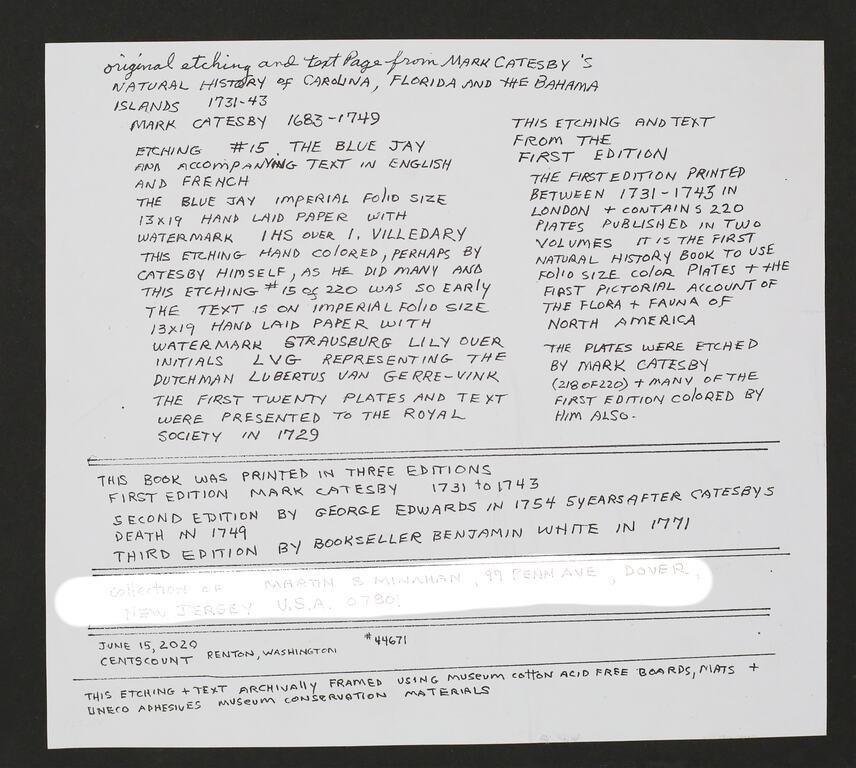 original etching and text Page from MARK CATESBY'S
NATURAL HISTORY of CAROLINA, FLORIDA AND tHE BAHAMA
ISLANDS 1731-43
MARK CATESBY 1683-1749
ETCHING #15 THE BLUE JAY
AND ACCOMPANYING TEXT IN ENGLISH
AND FRENCH
THE BLUE JAY IMPERIAL FOLIO SIZE
13x19 HAND LAID PAPER WITH
WATERMARK IHS OVER I. VILLEDARY
THIS ETCHING HAND COLORED, PERHAPS BY
CATESBY HIMSELF, AS HE DID MANY AND
THIS ETCHING #15 of 220 WAS SO EARLY
THE TEXT IS ON IMPERIAL FOLIO SIZE
13x19 HAND LAID PAPER WITH
WATERMARK STRAUSBURG LILY OVER
INITIALS LVG REPRESENTING THE
DUTCHMAN LUBERTUS VAN GERRE-VINK
THE FIRST TWENTY PLATES AND TEXT
WERE PRESENTED TO THE ROYAL
SOCIETY IN 1729
THIS ETCHING AND TEXT
FROM THE
FIRST EDITION
THE FIRST EDITION PRINTED
BETWEEN 1731-1743 IN
LONDON + CONTAINS 220
PLATES PUBLISHED IN TWO
VOLUMES IT IS THE FIRST
NATURAL HISTORY BOOK TO USE
FOLIO SIZE COLOR PLATES + tHE
FIRST PICTORIAL ACCOUNT OF
THE FLORA + FAUNA OF
NORTH AMERICA
THE PLATES WERE ETCHED
BY MARK CATESBY
(218 OF 220) + MANY OF THE
FIRST EDITION COLORED BY
HIM ALSO.
THIS BOOK WAS PRINTED IN THREE EDITIONS
FIRST EDITION MARK CATESBY 1731 to 1743
SECOND EDITION BY GEORGE EDWARDS IN 1754 5 YEARS AFTER CATESBYS
DEATH IN 1749
THIRD EDITION BY BOOKSELLER BENJAMIN WHITE IN 1771
JUNE 15, 2020 #44671
CENTSCOUNT RENTON, WASHINGTON
THIS ETCHING + TEXT ARCHIVALLY FRAMED USING MUSEUM COTTON ACID FREE BOARDS, MATS +
UNECO ADHESIVES MUSEUM CONSERVATION MATERIALS